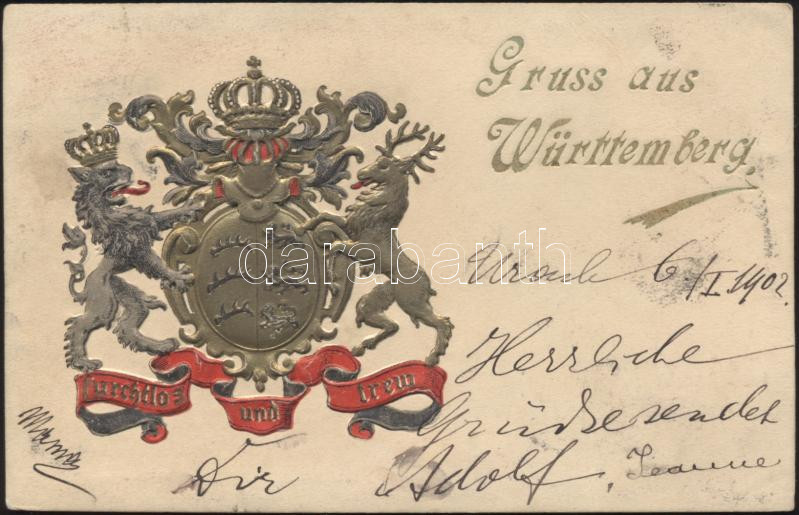 Gruss aus
Württemberg.
Urach 6/I 1902.
Herrliche
Grüße sendet
Dir Adolf, Jeanne
Mama
furchtlos und trew
darabanth.com